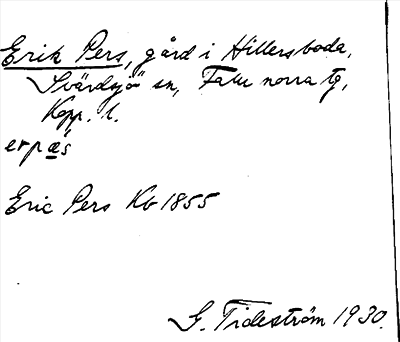 Erik Pers, gård i Hillersboda,
Svärdsjö sn, Falu norra tg,
Kopp. l.
erpæ̀s
Eric Pers Kb 1855
G. Tideström 1930.